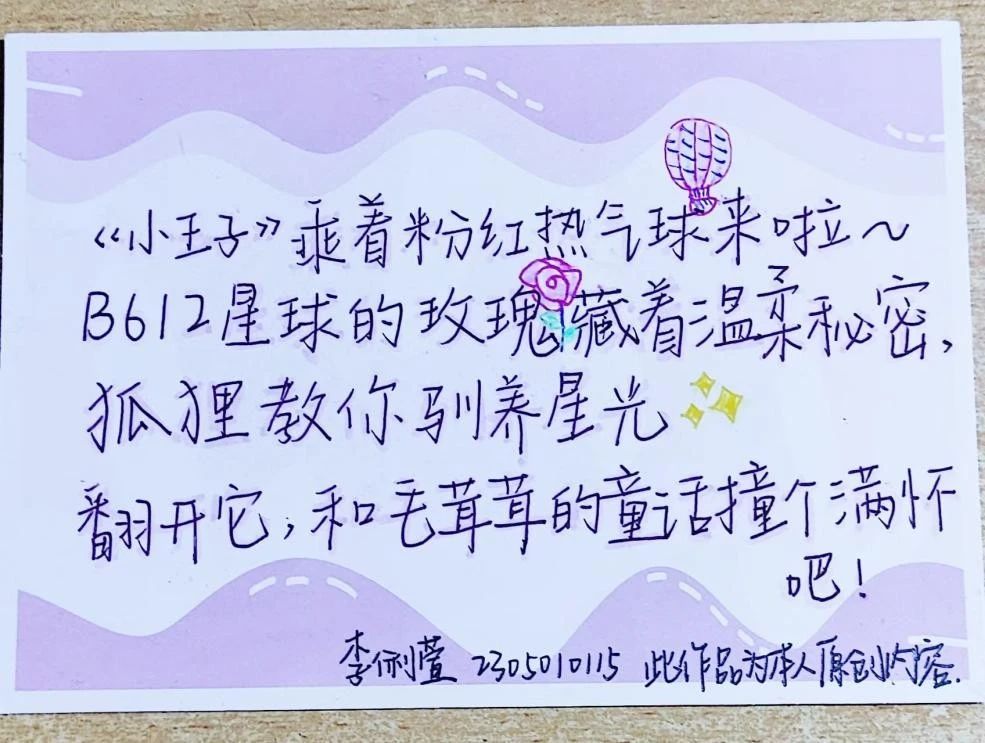 《小王子》乘着粉红热气球来啦~
B612星球的玫瑰藏着温柔秘密,
狐狸教你驯养星光
翻开它,和毛茸茸的童话撞个满怀
吧!
李俐萱 2305010115 此作品为本人原创内容.